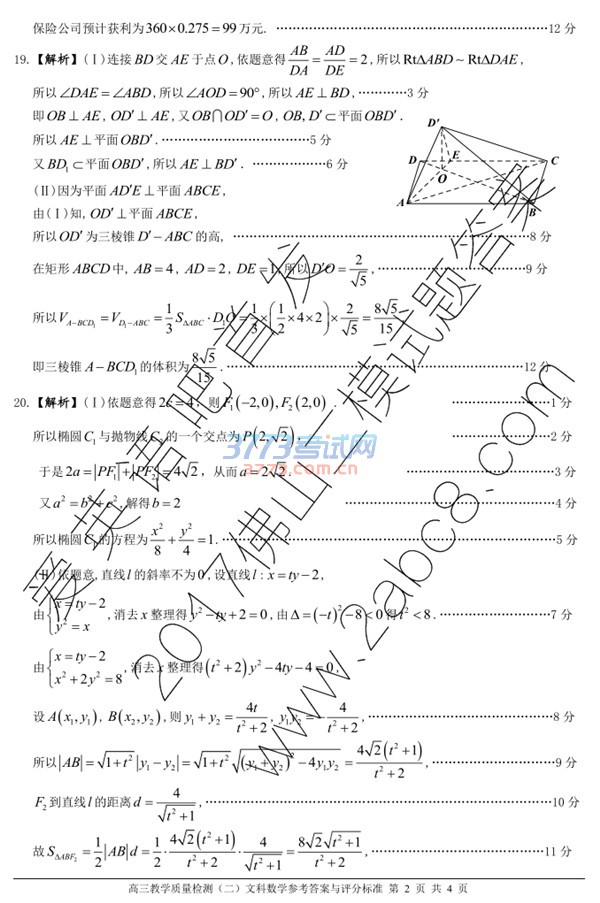 保险公司预计获利为360×0.275=99万元. ……12分
19.【解析】(Ⅰ)连接BD交AE于点O,依题意得AB/DA=AD/DE=2,所以Rt∆ABD~Rt∆DAE,
所以∠DAE=∠ABD,所以∠AOD=90°,所以AE⊥BD,…………3分
即OB⊥AE,OD′⊥AE,又OB∩OD′=O,OB,D′⊂平面OBD′.
所以AE⊥平面OBD′.……5分
又BD₁⊂平面OBD′,所以AE⊥BD′.……6分
D′
D
E
C
O
A
B
(Ⅱ)因为平面AD′E⊥平面ABCE,
由(Ⅰ)知,OD′⊥平面ABCE,
所以OD′为三棱锥D′−ABC的高,……8分
在矩形ABCD中,AB=4,AD=2,DE=1,所以D′O=2/√5,……9分
所以V_{A−BCD₁}=V_{D₁−ABC}=1/3 S_{∆ABC}·D₁O=1/3×(1/2×4×2)×2/√5=8√5/15
即三棱锥A−BCD₁的体积为8√5/15.……12分
20.【解析】(Ⅰ)依题意得2c=4,则F₁(−2,0),F₂(2,0).……1分
所以椭圆C₁与抛物线C₂的一个交点为P(2,√2)……2分
于是2a=|PF₁|+|PF₂|=4√2,从而a=2√2.……3分
又a²=b²+c²,解得b=2……4分
所以椭圆C₁的方程为x²/8+y²/4=1.……5分
(Ⅱ)依题意,直线l的斜率不为0,设直线l:x=ty−2,
由{x=ty−2, y²=x,消去x整理得y²−ty+2=0,由Δ=(−t)²−8<0得t²<8.……7分
由{x=ty−2, x²+2y²=8,消去x整理得(t²+2)y²−4ty−4=0,
设A(x₁,y₁),B(x₂,y₂),则y₁+y₂=4t/(t²+2),y₁y₂=−4/(t²+2),……8分
所以|AB|=√(1+t²)|y₁−y₂|=√(1+t²)√((y₁+y₂)²−4y₁y₂)=4√2(t²+1)/(t²+2),……9分
F₂到直线l的距离d=4/√(t²+1),……10分
故S_{∆ABF₂}=1/2|AB|d=1/2·4√2(t²+1)/(t²+2)·4/√(t²+1)=8√2√(t²+1)/(t²+2),……11分
高三教学质量检测(二)文科数学参考答案与评分标准 第 2 页 共 4 页
3773考试网
a773.com.cn
2017佛山一模试题答案
www.2abc8.com